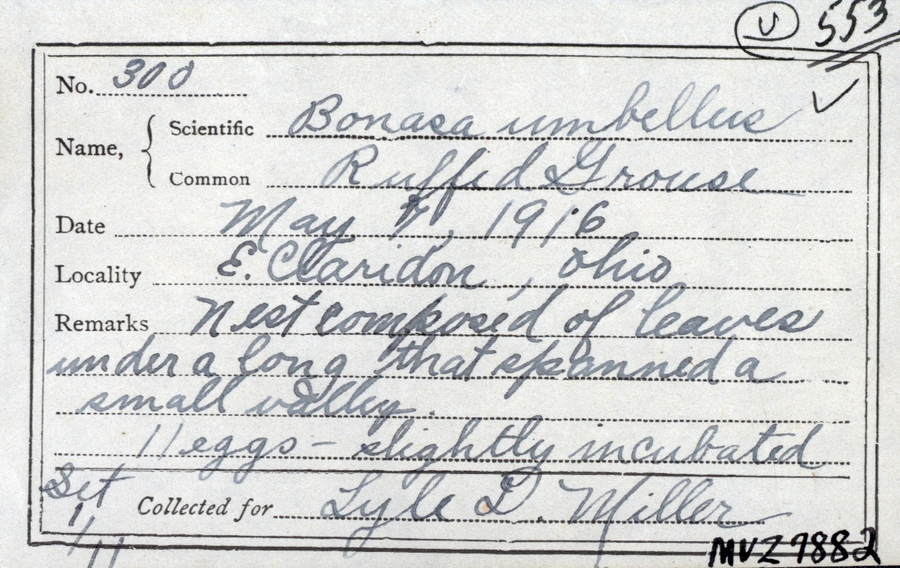 U 553
No. 300
Name, Scientific Bonasa umbellus ✓
Common Ruffed Grouse
Date May 7, 1916
Locality E. Claridon, Ohio
Remarks Nest composed of leaves
under a long that spanned a
small valley.
11 eggs – slightly incubated
Set 1/11
Collected for Lyle D. Miller
MVZ 7882